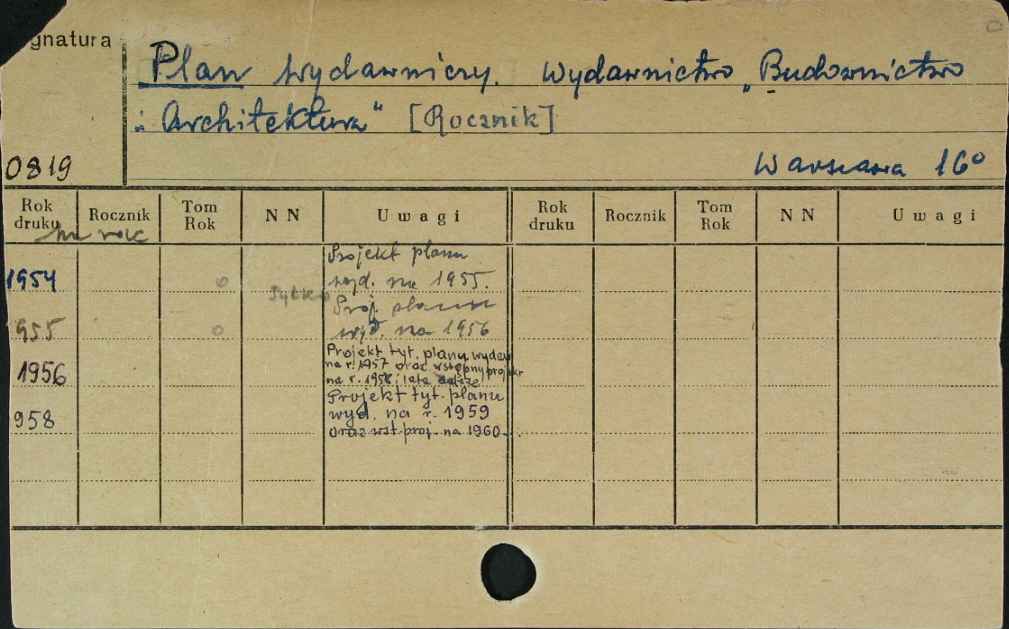 ygnatura
Plan wydawniczy. Wydawnictwo „Budownictwo
i Architektura" [Rocznik]
0819
Warszawa 16°
Rok druku Rocznik Tom Rok N N Uwagi Rok druku Rocznik Tom Rok N N Uwagi
na rok
1954 0 Projekt planu
wyd. na 1955.
Proj. planu
955 0 wyd. na 1956
Projekt tyt. planu wydaw
na r. 1957 oraz wstępny projekt
1956 na r. 1958 i lata dalsze
Projekt tyt. planu
958 wyd. na r. 1959
oraz wst. proj. na 1960